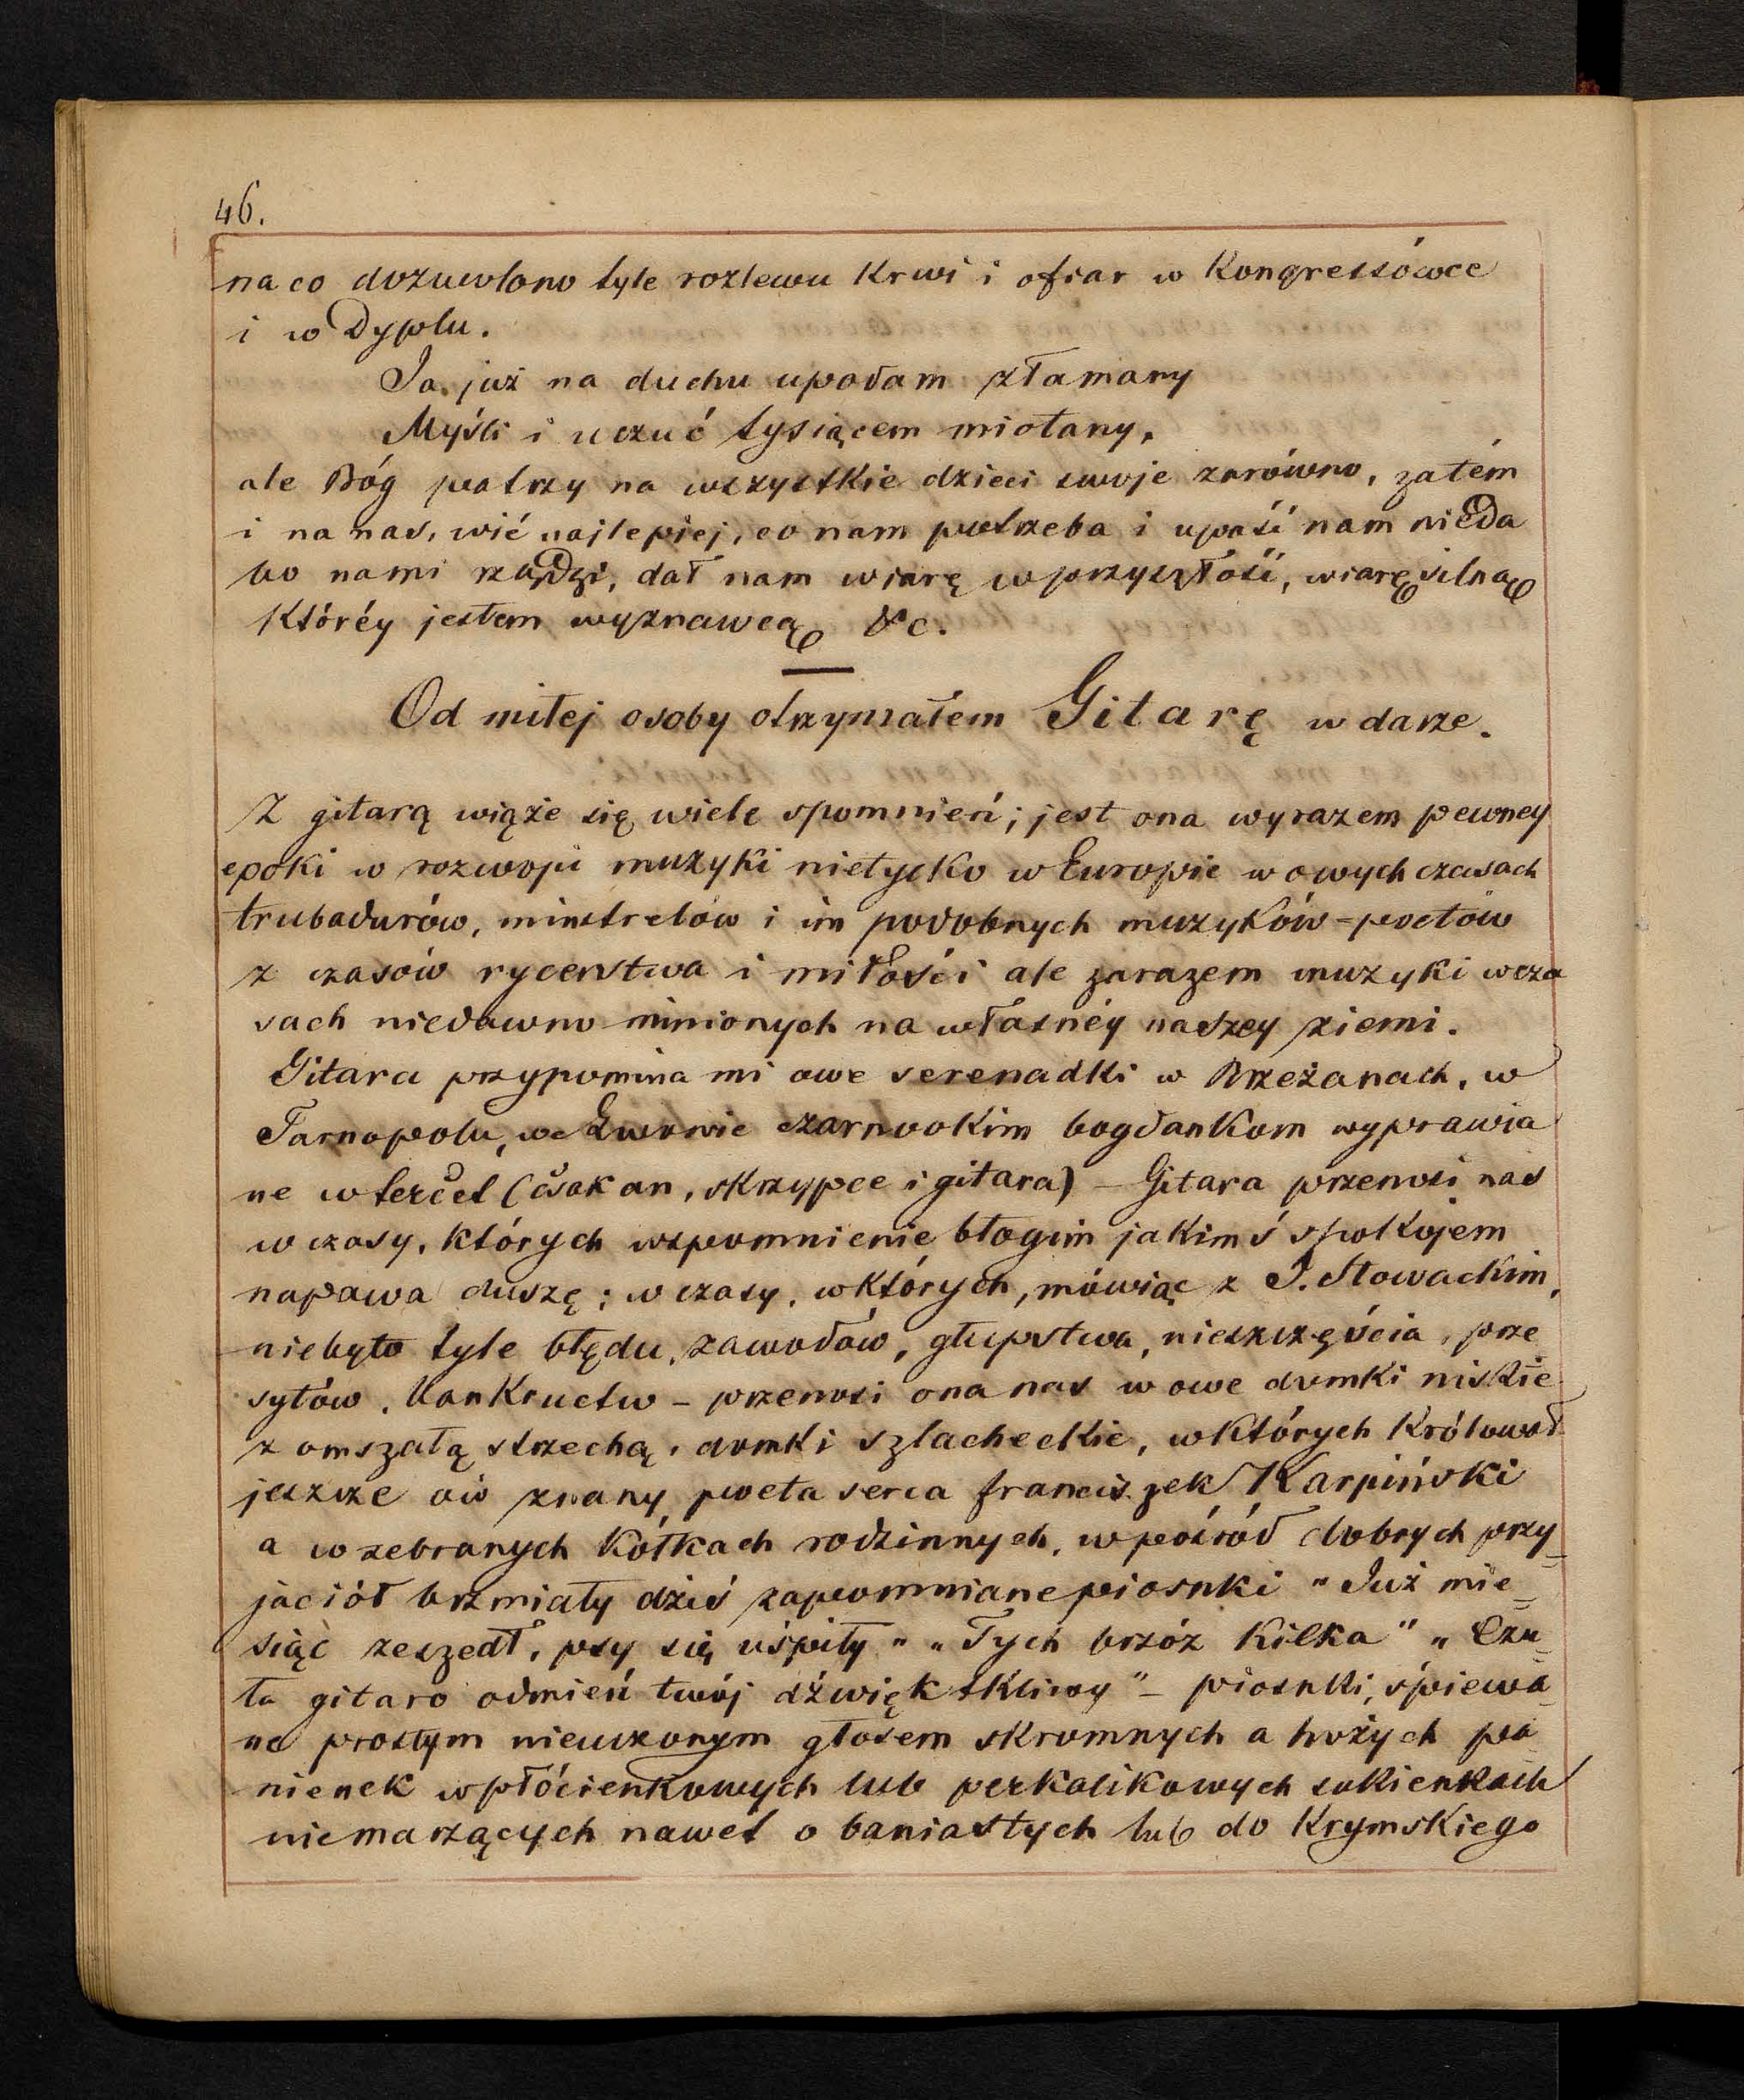 46.
na co dozwolono tyle rozlewu Krwi i ofiar w Kongressówce
i w Dyplu.
Ja już na duchu upadam złamany
Myśli i uczuć tysiącem miotany,
ale Bóg patrzy na wszystkie dzieci swoje zarówno, zatém
i na nas, wié najlepiej, co nam potrzeba i upaść nam nieda
bo nami rządzi, dał nam wiarę w przyszłość, wiarę silną
Któréy jestem wyznawcą &c.
Od miłej osoby otrzymałem Gitarę w darze.
Z gitarą wiąże się wiele spomnień; jest ona wyrazem pewney
epoki w rozwoju muzyki nietylko w Europie w owych czasach
trubadurów, minstrelów i im podobnych muzyków-poetów
z czasów rycerstwa i miłości ale zarazem muzyki w cza
sach niedawno minionych na własnéy naszey ziemi.
Gitara przypomina mi owe serenadki w Brzeżanach, w
Tarnopolu, we Lwowie czarnookim bogdankom wyprawia
ne w tercet (čsakan, skrzypce i gitara) – Gitara przenosi nas
w czasy, których wspomnienie błogim jakimś spokojem
napawa duszę; w czasy, w których, mówiąc z J. Słowackim,
niebyło tyle błędu, zawodów, głupstwa, nieszczęścia, prze
sytów, bankructw – przenosi ona nas w owe domki niskie
z omszałą strzechą, domki szlacheckie, w których Królował
jeszcze ów znany poeta serca franciszek Karpiński
a w zebranych Kółkach rodzinnych, w pośród dobrych przy=
jaciół brzmiały dziś zapomniane piosnki "Już mie=
siąc zeszedł, psy się uśpiły" "Tych brzóz Kilka" "Czu=
ła gitaro odmień twój dźwięk tkliwy" – piosnki, śpiewa=
ne prostym nieuczonym głosem skromnych a hożych pa=
nienek w płócienkowych lub perkalikowych sukienkach
niemarzących nawet o baniastych lub do Krymskiego